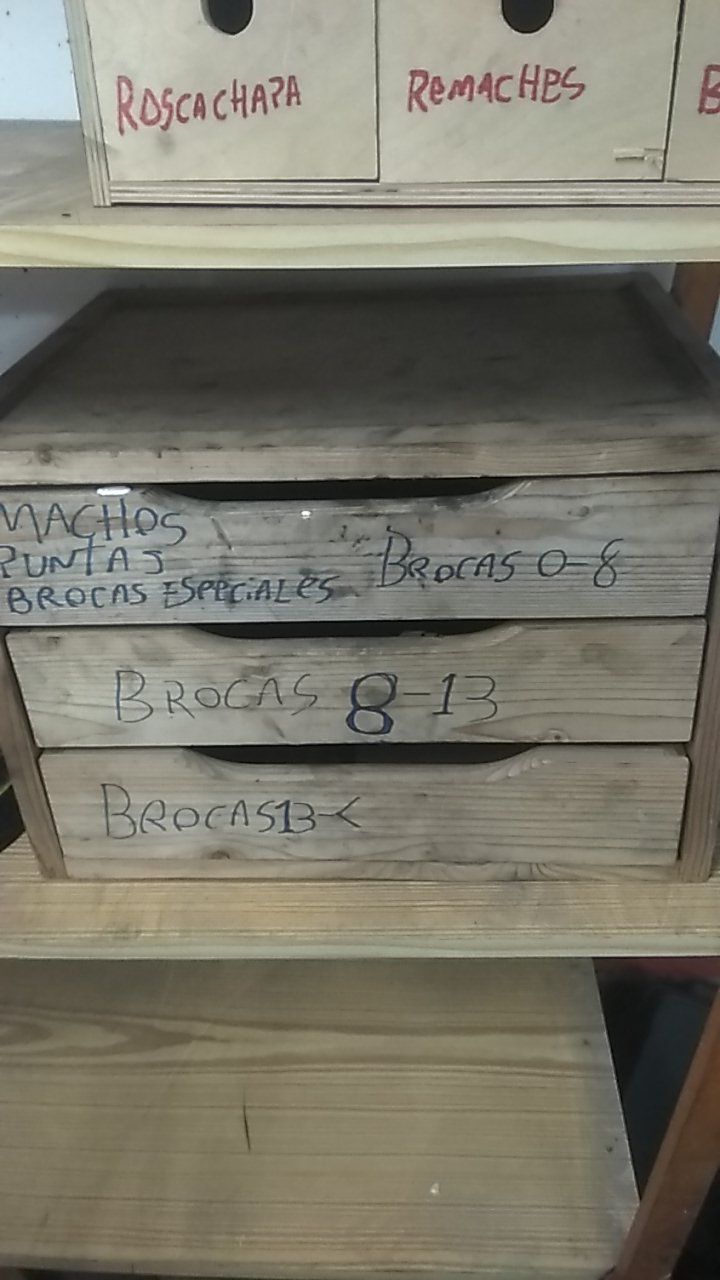 ROSCACHAPA
REMACHES
B
MACHOS
PUNTAS
BROCAS ESPECIALES
BROCAS 0-8
BROCAS 8-13
BROCAS 13-<